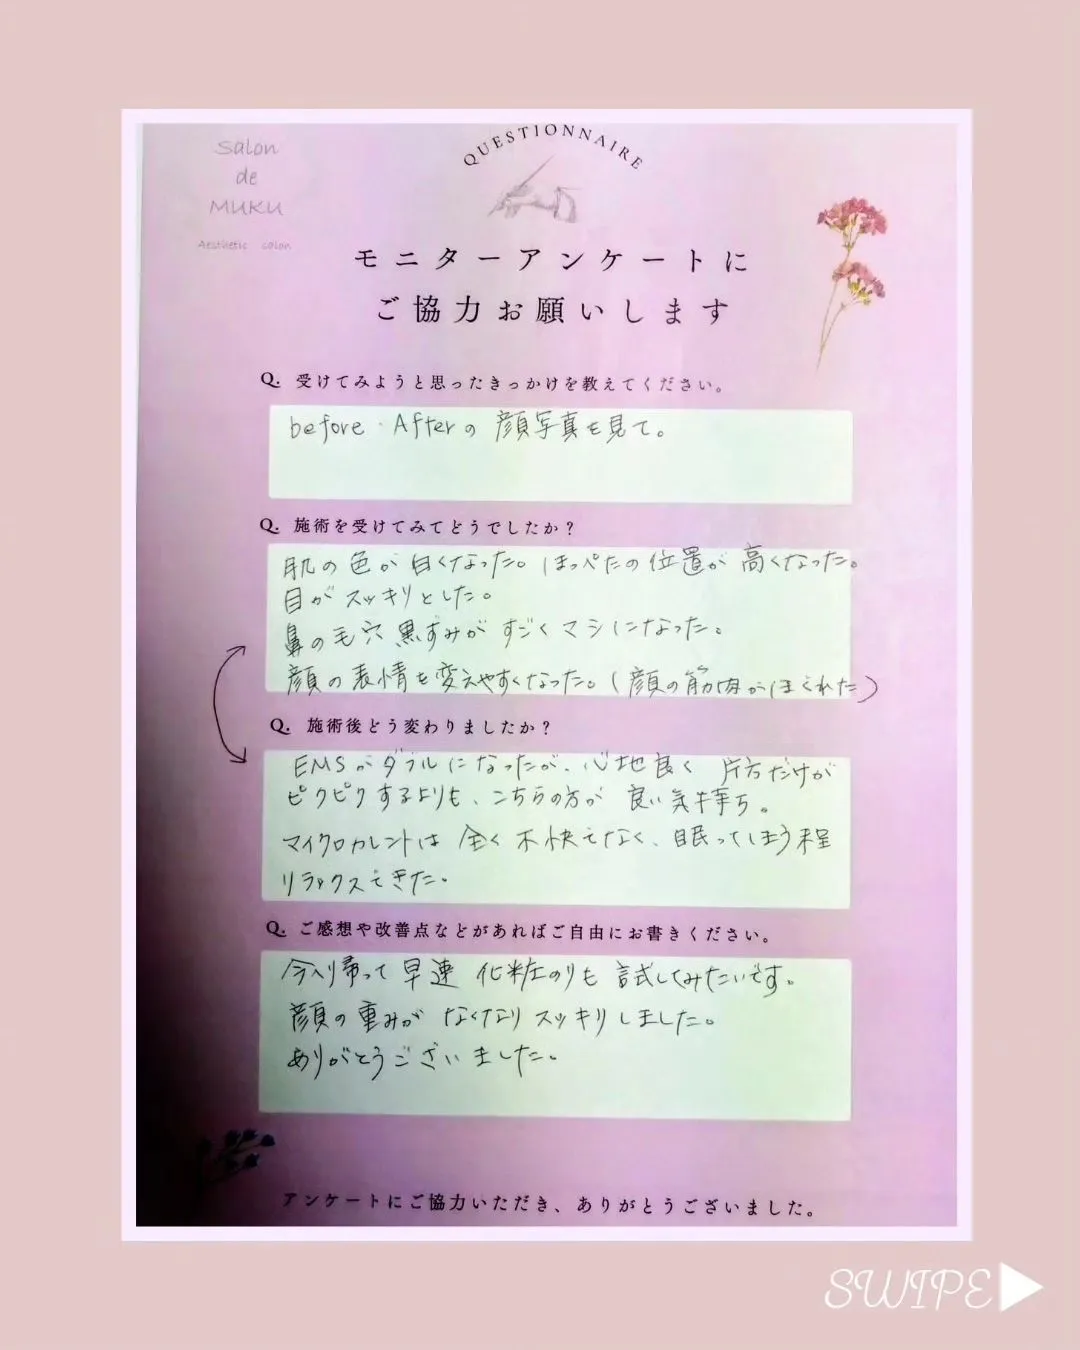 Salon
de
MUKU
Aesthetic salon
QUESTIONNAIRE
モニターアンケートに
ご協力お願いします
Q. 受けてみようと思ったきっかけを教えてください。
before・Afterの顔写真を見て。
Q. 施術を受けてみてどうでしたか？
肌の色が白くなった。ほっぺたの位置が高くなった。
目がスッキリとした。
鼻の毛穴黒ずみがすごくマシになった。
顔の表情を変えやすくなった。(顔の筋肉がほぐれた)
Q. 施術後どう変わりましたか？
EMSがダブルになったが、心地良く片方だけが
ピクピクするよりも、こちらの方が良い気持ち。
マイクロカレントは全く不快でなく、眠ってしまう程
リラックスできた。
Q. ご感想や改善点などがあればご自由にお書きください。
今から帰って早速化粧のりも試してみたいです。
顔の重みがなくなりスッキリしました。
ありがとうございました。
アンケートにご協力いただき、ありがとうございました。
SWIPE